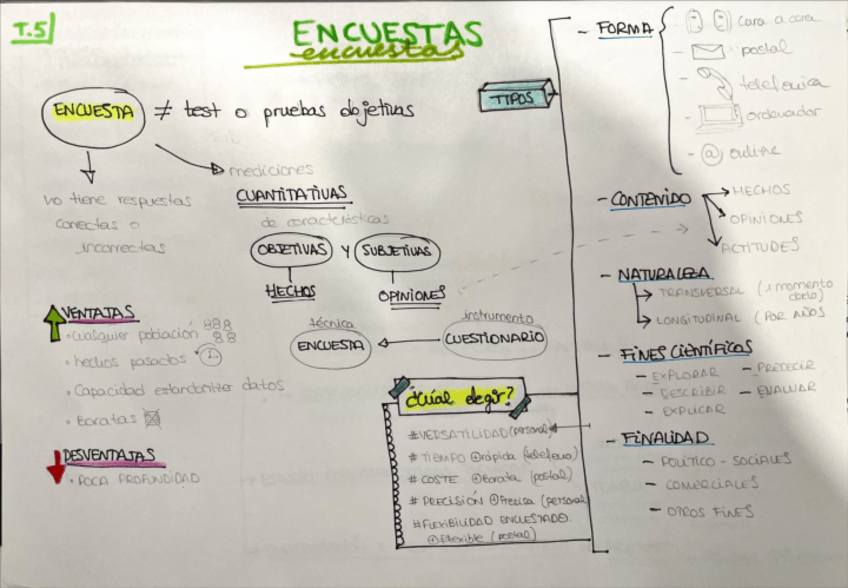 T.5
ENCUESTAS
encuestas
ENCUESTA ≠ test o pruebas objetivas
no tiene respuestas
correctas o
incorrectas
mediciones
CUANTITATIVAS
de características
OBJETIVAS Y SUBJETIVAS
HECHOS OPINIONES
técnica
ENCUESTA
instrumento
CUESTIONARIO
VENTAJAS
• cualquier población
• hechos pasados
• Capacidad estandarizar datos
• Baratas
DESVENTAJAS
• POCA PROFUNDIDAD
¿Cuál elegir?
#VERSATILIDAD (personal)
# TIEMPO ⊕rápida (teléfono)
# COSTE ⊕Barata (postal)
# PRECISIÓN ⊕Precisa (personal
#FLEXIBILIDAD ENCUESTADO.
⊕flexible (postal)
TIPOS
- FORMA
cara a cara
- postal
- telefónica
- ordenador
- @ online
- CONTENIDO
HECHOS
OPINIONES
ACTITUDES
- NATURALEZA
TRANSVERSAL (1 momento
LONGITUDINAL (POR AÑOS
- FINES CIENTÍFICOS
- EXPLORAR - PREDECIR
- DESCRIBIR - EVALUAR
- EXPLICAR
- FINALIDAD
- POLÍTICO - SOCIALES
- COMERCIALES
- OTROS FINES